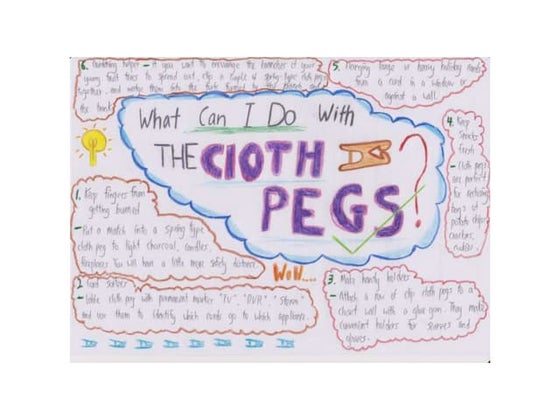 What Can I Do With
THE ClOTH
PEGS ?
WoW....
1. Keep fingers from
getting burned
- Put a match into a spring type
cloth peg to light charcoal, candles
fireplaces. You will have a little more safety distance
2.
- Lable cloth peg with permanent marker "TV", "DVR", "Stereo"
and use them to identify which cords go to which appliance.
3. Make handy holders
- Attach a row of clip cloth pegs to a
closet wall with a glue gun. They make
convenient holders for scarves and
gloves.
4. Keep
Snacks
fresh
- Cloth pegs
are perfect
for
bags of
potato chips
crackers,
5. Hanging large or heavy holiday cards
from a cord in a window or
against a wall.
6. Gardening helper - If you want to encourage the branches of your
young that tries to spread out, clip a couple of spring type cloth pegs
together, and wedge them into the
the trunk